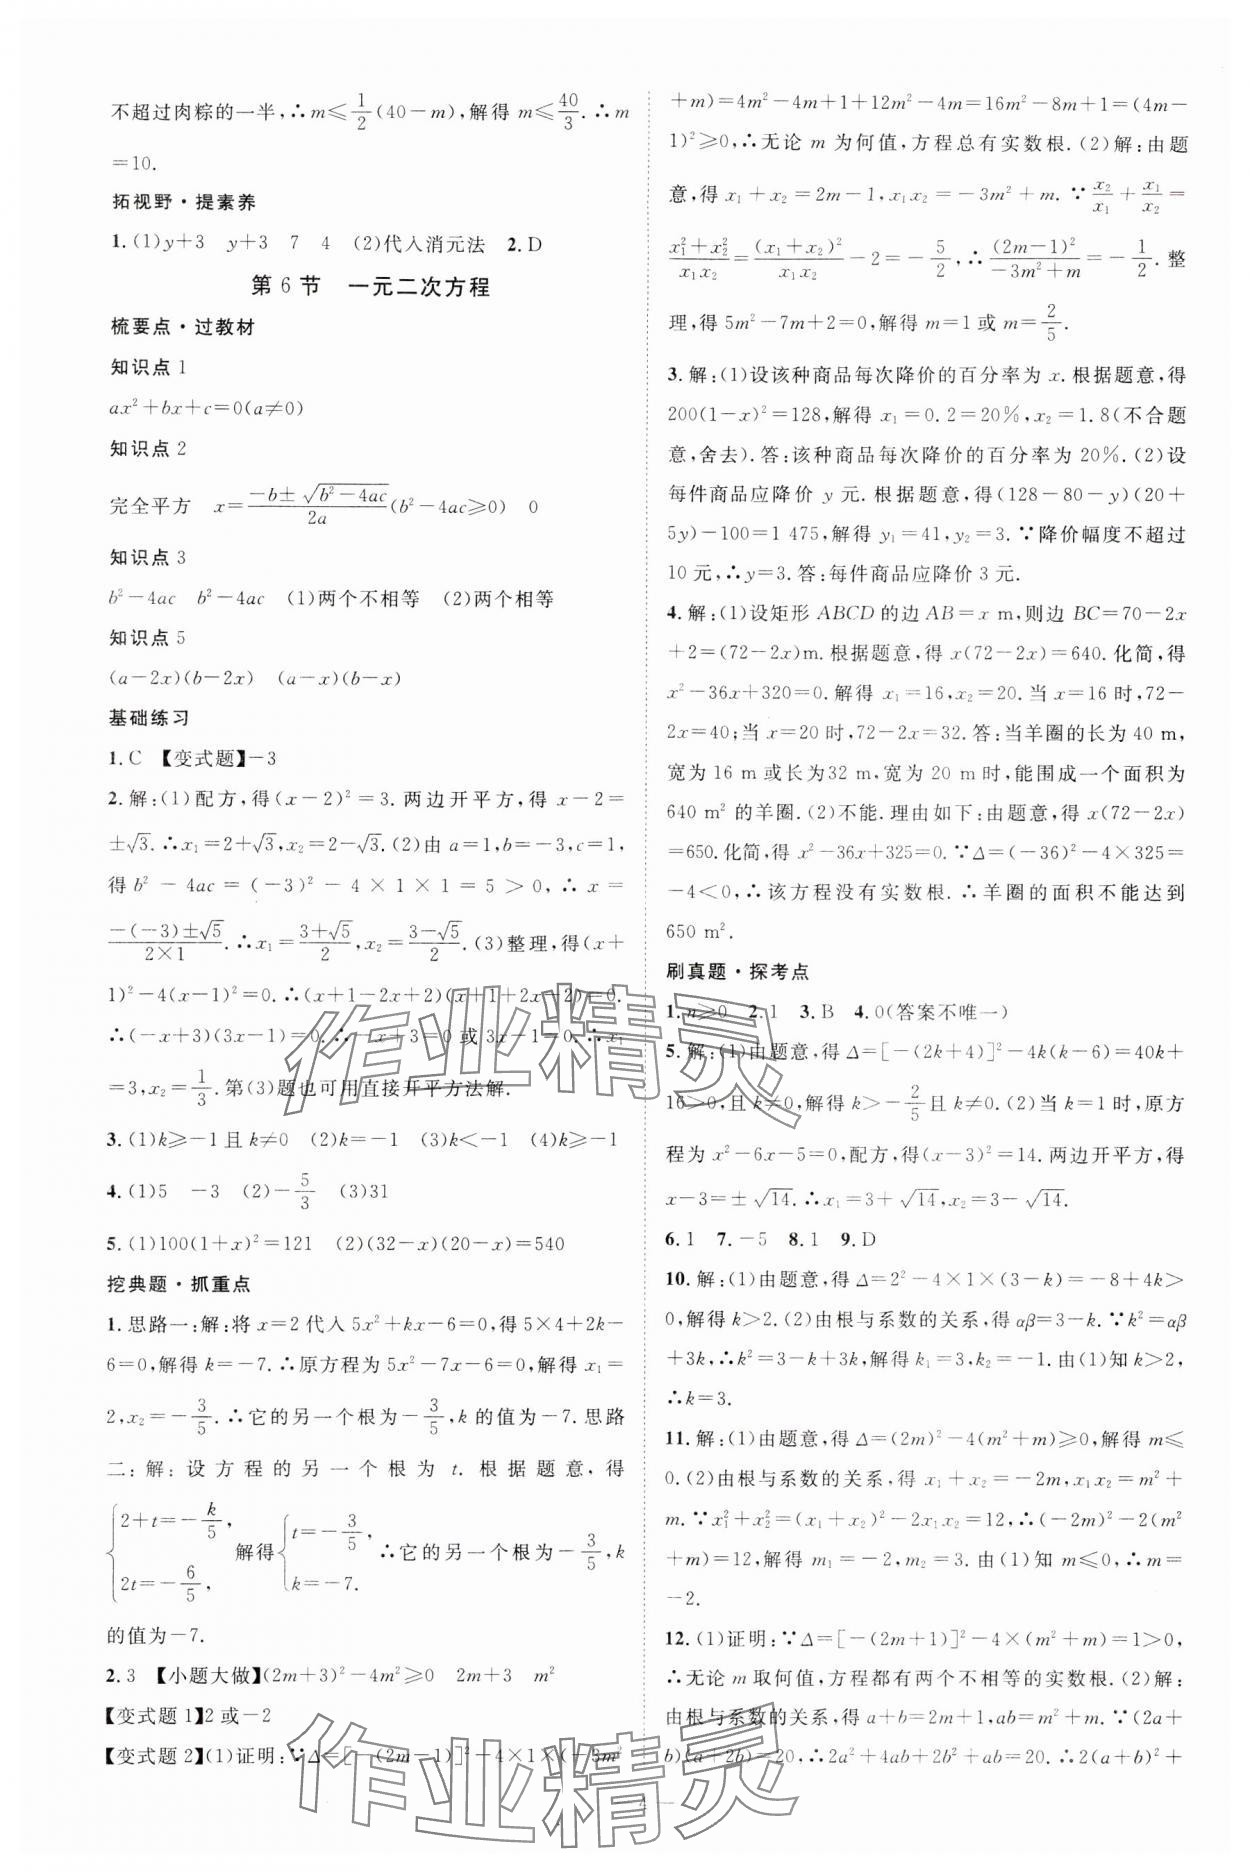 不超过肉粽的一半,∴m≤1/2(40-m),解得 m≤40/3.∴m
=10.
拓视野·提素养
1.(1)y+3 y+3 7 4 (2)代入消元法 2.D
第6节 一元二次方程
梳要点·过教材
知识点1
ax²+bx+c=0(a≠0)
知识点2
完全平方 x=(-b±√(b²-4ac))/(2a)(b²-4ac≥0) 0
知识点3
b²-4ac b²-4ac (1)两个不相等 (2)两个相等
知识点5
(a-2x)(b-2x) (a-x)(b-x)
基础练习
1.C 【变式题】-3
2.解:(1)配方,得(x-2)²=3.两边开平方,得 x-2=
±√3.∴x₁=2+√3,x₂=2-√3.(2)由 a=1,b=-3,c=1,
得 b²-4ac=(-3)²-4×1×1=5>0,∴x=
(-(-3)±√5)/(2×1).∴x₁=(3+√5)/2,x₂=(3-√5)/2.(3)整理,得(x+
1)²-4(x-1)²=0.∴(x+1-2x+2)(x+1+2x-2)=0.
∴(-x+3)(3x-1)=0.∴-x+3=0或3x-1=0.∴x₁
=3,x₂=1/3.第(3)题也可用直接开平方法解.
3.(1)k≥-1且k≠0 (2)k=-1 (3)k<-1 (4)k≥-1
4.(1)5 -3 (2)-5/3 (3)31
5.(1)100(1+x)²=121 (2)(32-x)(20-x)=540
挖典题·抓重点
1.思路一:解:将 x=2 代入 5x²+kx-6=0,得 5×4+2k-
6=0,解得 k=-7.∴原方程为 5x²-7x-6=0,解得 x₁=
2,x₂=-3/5.∴它的另一个根为-3/5,k 的值为-7.思路
二:解:设方程的另一个根为 t.根据题意,得
{2+t=-k/5, 2t=-6/5, 解得{t=-3/5, k=-7. ∴它的另一个根为-3/5,k
的值为-7.
2.3 【小题大做】(2m+3)²-4m²≥0 2m+3 m²
【变式题1】2或-2
【变式题2】(1)证明:∵Δ=[-(2m-1)]²-4×1×(-3m²
+m)=4m²-4m+1+12m²-4m=16m²-8m+1=(4m-
1)²≥0,∴无论 m 为何值,方程总有实数根.(2)解:由题
意,得 x₁+x₂=2m-1,x₁x₂=-3m²+m.∵x₂/x₁+x₁/x₂=
(x₁²+x₂²)/(x₁x₂)=(x₁+x₂)²/(x₁x₂)-2=-5/2,∴(2m-1)²/(-3m²+m)=-1/2.整
理,得 5m²-7m+2=0,解得 m=1 或 m=2/5.
3.解:(1)设该种商品每次降价的百分率为 x.根据题意,得
200(1-x)²=128,解得 x₁=0.2=20%,x₂=1.8(不合题
意,舍去).答:该种商品每次降价的百分率为 20%.(2)设
每件商品应降价 y 元.根据题意,得(128-80-y)(20+
5y)-100=1 475,解得 y₁=41,y₂=3.∵降价幅度不超过
10 元,∴y=3.答:每件商品应降价 3 元.
4.解:(1)设矩形 ABCD 的边 AB=x m,则边 BC=70-2x
+2=(72-2x)m.根据题意,得 x(72-2x)=640.化简,得
x²-36x+320=0.解得 x₁=16,x₂=20.当 x=16 时,72-
2x=40;当 x=20 时,72-2x=32.答:当羊圈的长为 40 m,
宽为 16 m 或长为32 m,宽为 20 m 时,能围成一个面积为
640 m² 的羊圈.(2)不能.理由如下:由题意,得 x(72-2x)
=650.化简,得 x²-36x+325=0.∵Δ=(-36)²-4×325=
-4<0,∴该方程没有实数根.∴羊圈的面积不能达到
650 m².
刷真题·探考点
1.n≥0 2.1 3.B 4.0(答案不唯一)
5.解:(1)由题意,得 Δ=[-(2k+4)]²-4k(k-6)=40k+
16>0,且 k≠0,解得 k>-2/5且 k≠0.(2)当 k=1 时,原方
程为 x²-6x-5=0,配方,得(x-3)²=14.两边开平方,得
x-3=±√14.∴x₁=3+√14,x₂=3-√14.
6.1 7.-5 8.1 9.D
10.解:(1)由题意,得 Δ=2²-4×1×(3-k)=-8+4k>
0,解得 k>2.(2)由根与系数的关系,得 αβ=3-k.∵k²=αβ
+3k,∴k²=3-k+3k,解得 k₁=3,k₂=-1.由(1)知 k>2,
∴k=3.
11.解:(1)由题意,得 Δ=(2m)²-4(m²+m)≥0,解得 m≤
0.(2)由根与系数的关系,得 x₁+x₂=-2m,x₁x₂=m²+
m.∵x₁²+x₂²=(x₁+x₂)²-2x₁x₂=12,∴(-2m)²-2(m²
+m)=12,解得 m₁=-2,m₂=3.由(1)知 m≤0,∴m=
-2.
12.(1)证明:∵Δ=[-(2m+1)]²-4×(m²+m)=1>0,
∴无论 m 取何值,方程都有两个不相等的实数根.(2)解:
由根与系数的关系,得 a+b=2m+1,ab=m²+m.∵(2a+
b)(a+2b)=20,∴2a²+4ab+2b²+ab=20.∴2(a+b)²+
4
作业精灵
作业精灵